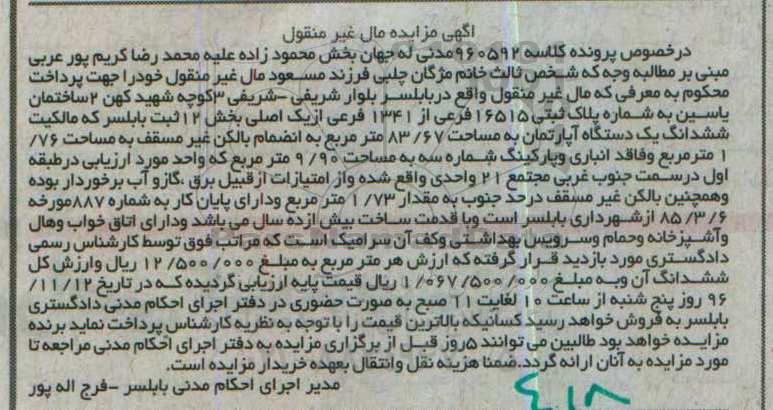 آگهی مزایده مال غیر منقول
درخصوص پرونده کلاسه ۹۶۰۵۹۲مدنی له جهان بخش محمود زاده علیه محمد رضا کریم پور عربی
مبنی بر مطالبه وجه که شخص ثالث خانم مژگان چلبی فرزند مسعود مال غیر منقول خودرا جهت پرداخت
محکوم به معرفی که مال غیر منقول واقع دربابلسر بلوار شریفی –شریفی ۳کوچه شهید کهن ۲ساختمان
یاسین به شماره پلاک ثبتی ۱۶۵۱۵فرعی از ۱۳۴۱ فرعی ازیک اصلی بخش ۱۲ثبت بابلسر که مالکیت
ششدانگ یک دستگاه آپارتمان به مساحت ۸۳/۶۷ متر مربع به انضمام بالکن غیر مسقف به مساحت ۷۶/
۱ مترمربع وفاقد انباری وپارکینگ شماره سه به مساحت ۹/۹۰ متر مربع که واحد مورد ارزیابی درطبقه
اول درسمت جنوب غربی مجتمع ۲۱ واحدی واقع شده واز امتیازات ازقبیل برق ،گازو آب برخوردار بوده
وهمچنین بالکن غیر مسقف درحد جنوب به مقدار ۱/۷۳ متر مربع ودارای پایان کار به شماره ۸۸۷مورخه
۸۵/۳/۶ ازشهرداری بابلسر است وبا قدمت ساخت بیش ازده سال می باشد ودارای اتاق خواب وهال
وآشپزخانه وحمام وسرویس بهداشتی وکف آن سرامیک است که مراتب فوق توسط کارشناس رسمی
دادگستری مورد بازدید قرار گرفته که ارزش هر متر مربع به مبلغ ۱۲/۵۰۰/۰۰۰ ریال وارزش کل
ششدانگ آن وبه مبلغ ۱/۰۶۷/۵۰۰/۰۰۰ ریال قیمت پایه ارزیابی گردیده که در تاریخ ۱۱/۱۲/
۹۶ روز پنج شنبه از ساعت ۱۰ لغایت ۱۱ صبح به صورت حضوری در دفتر اجرای احکام مدنی دادگستری
بابلسر به فروش خواهد رسید کسانیکه بالاترین قیمت را با توجه به نظریه کارشناس پرداخت نماید برنده
مزایده خواهد بود طالبین می توانند ۵روز قبل از برگزاری مزایده به دفتر اجرای احکام مدنی مراجعه تا
مورد مزایده به آنان ارائه گردد.ضمنا هزینه نقل وانتقال بعهده خریدار مزایده است.
مدیر اجرای احکام مدنی بابلسر –فرج اله پور